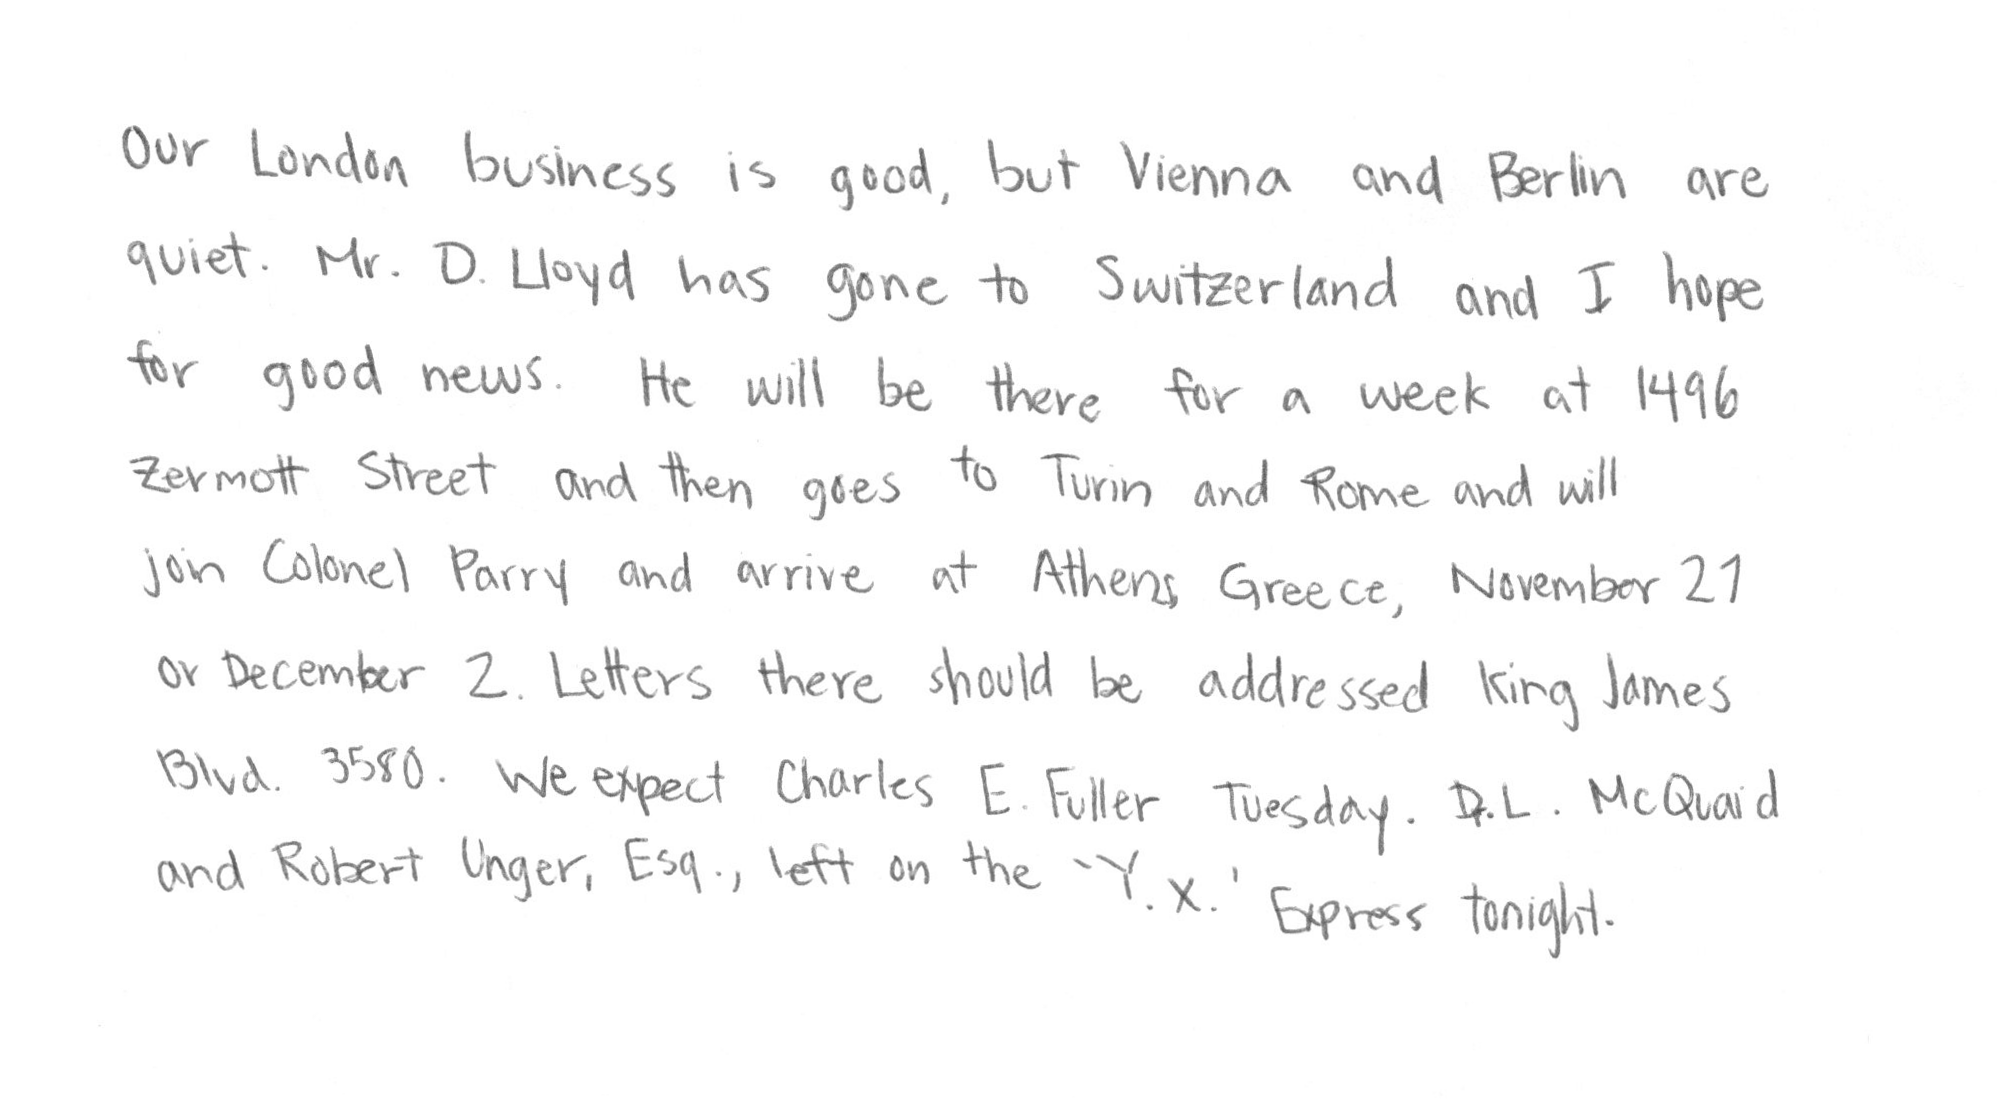 Our London business is good, but Vienna and Berlin are
quiet. Mr. D. Lloyd has gone to Switzerland and I hope
for good news. He will be there for a week at 1496
Zermott Street and then goes to Turin and Rome and will
join Colonel Parry and arrive at Athens, Greece, November 27
or December 2. Letters there should be addressed King James
Blvd. 3580. We expect Charles E. Fuller Tuesday. D.L. McQuaid
and Robert Unger, Esq., left on the 'Y.X.' Express tonight.